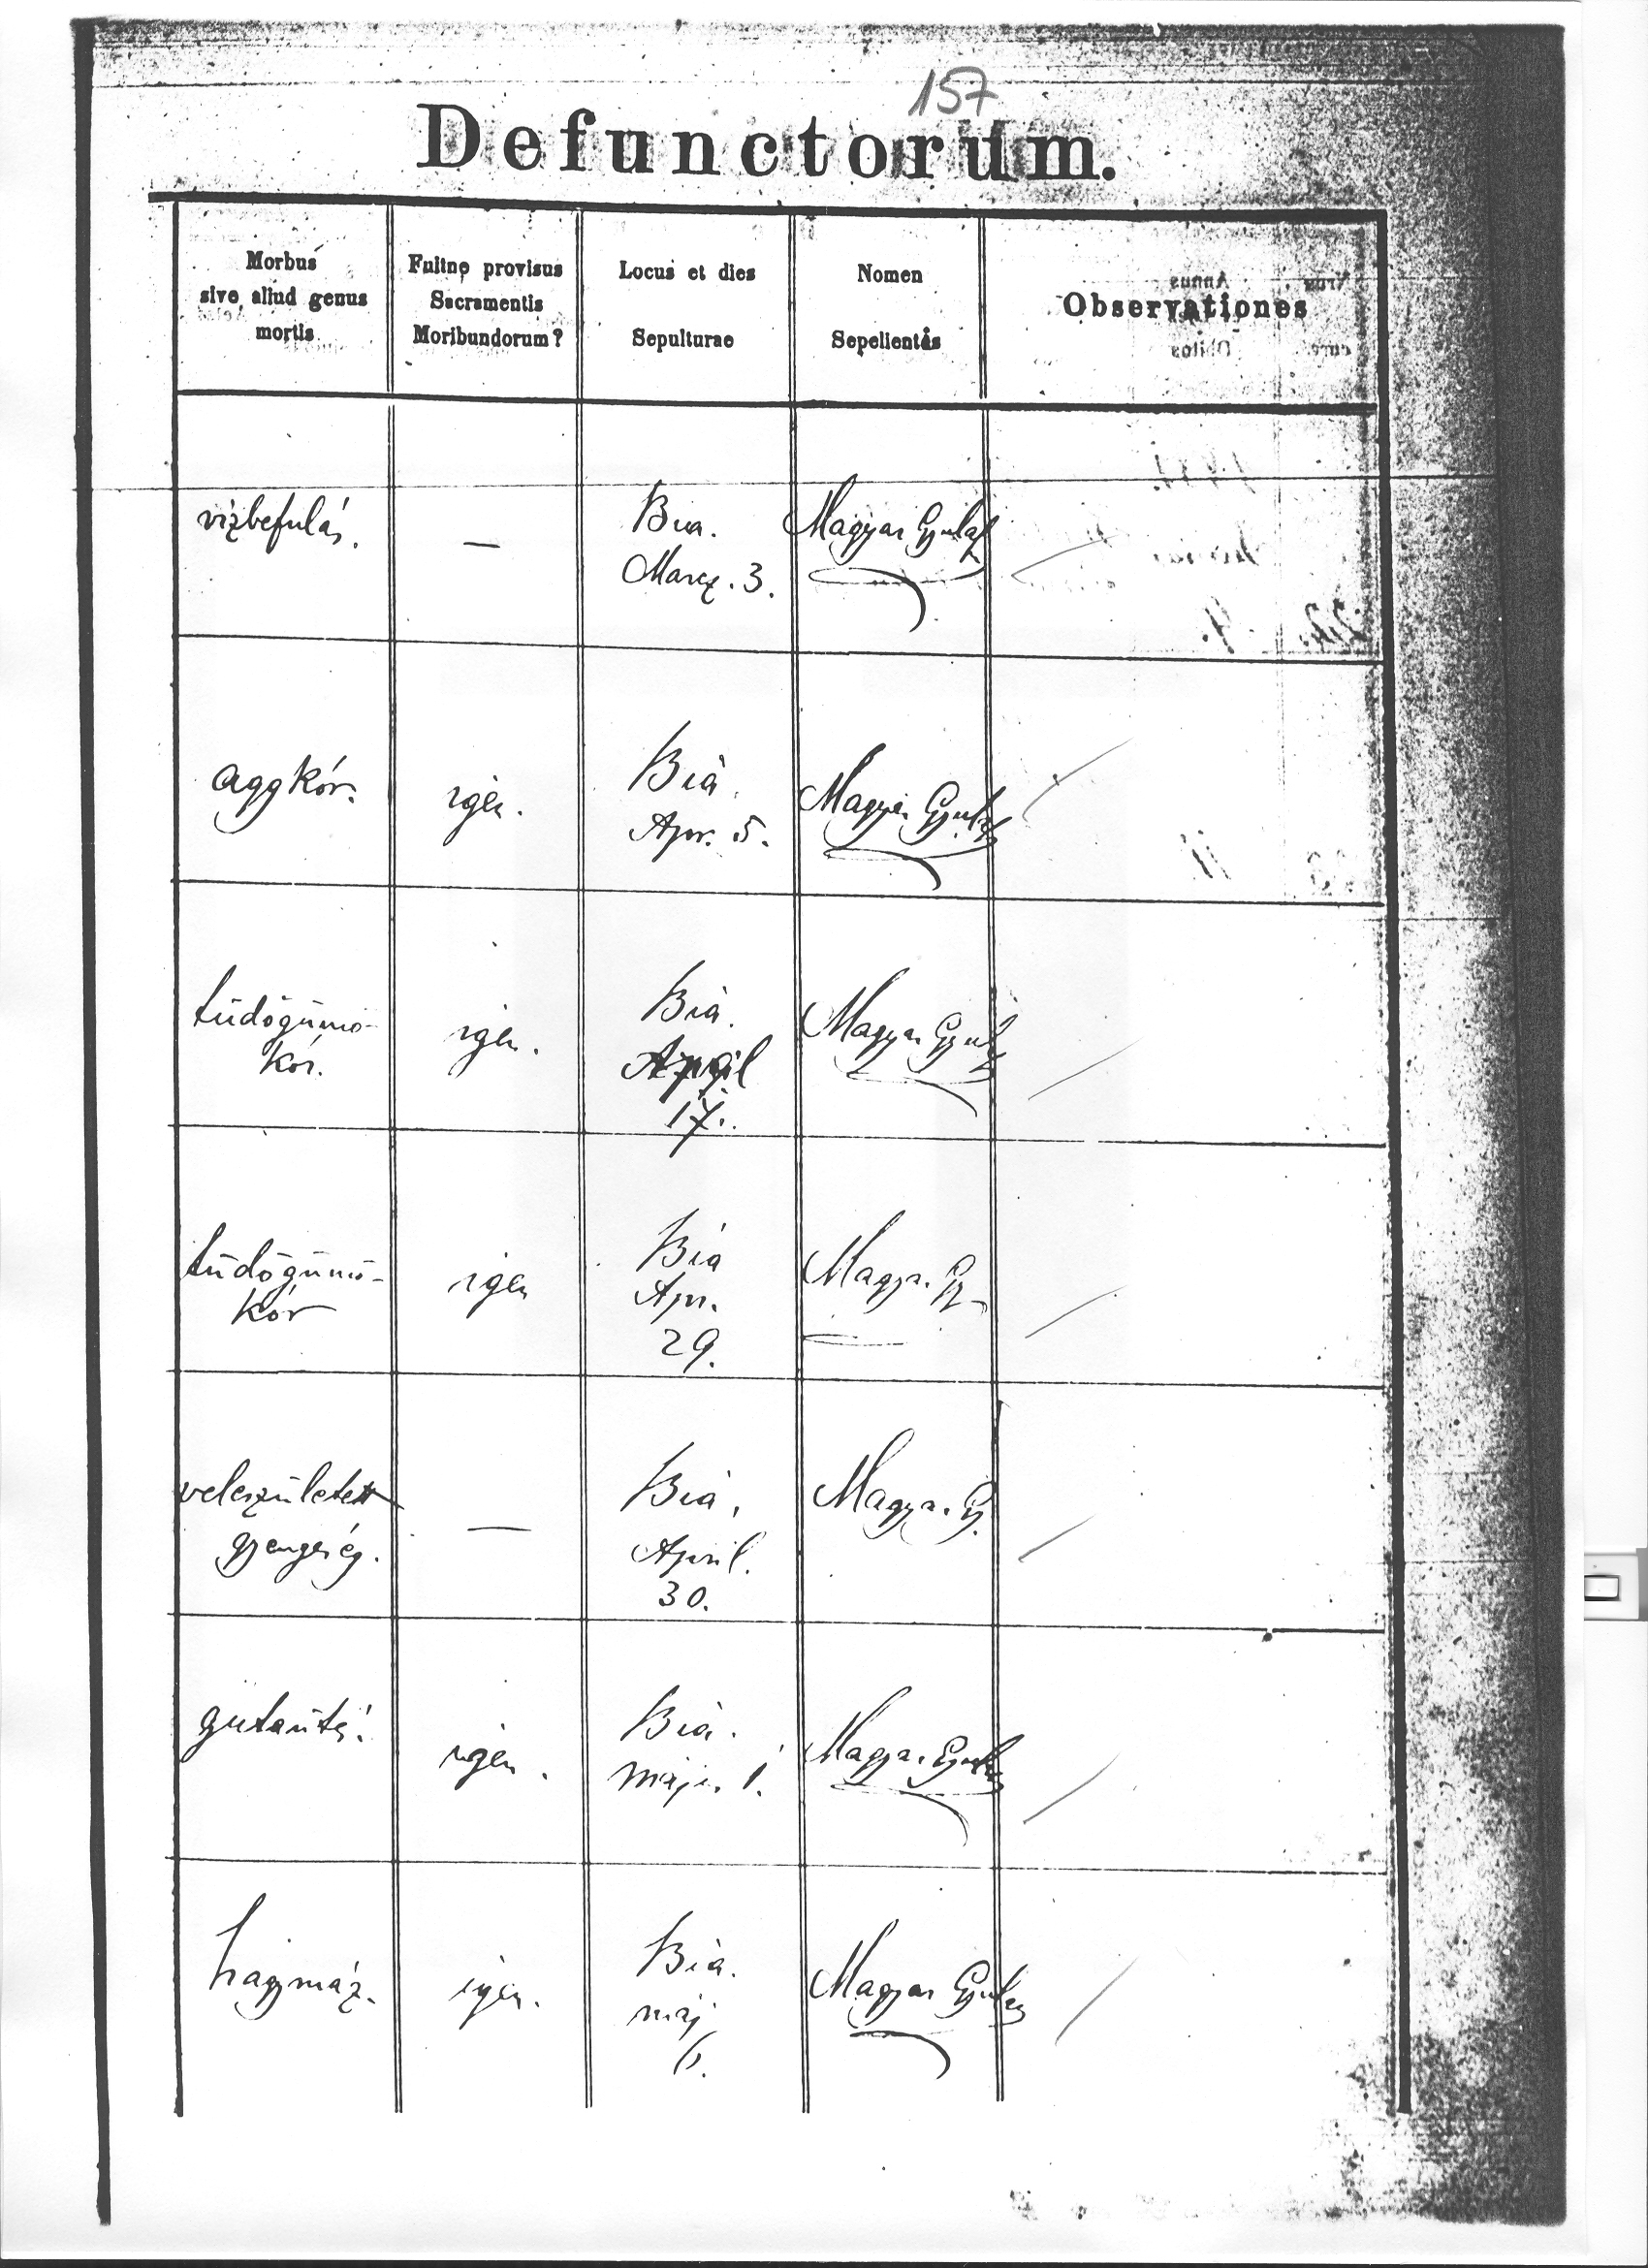 157
Defunctorum.
Morbus
sive aliud genus
mortis
Fuitne provisus
Sacramentis
Moribundorum?
Locus et dies
Sepulturae
Nomen
Sepelientis
Observationes
vizbefulás.
—
Bia.
Marcz. 3.
Magyar Gyula
aggkór.
igen.
Bia.
Apr. 5.
Magyar Gyula
tüdőgümő-
kór.
igen.
Bia.
April
17.
Magyar Gyula
tüdőgümő-
kór
igen
Bia
Apr.
29.
Magyar Gy
veleszületett
gyengeség.
—
Bia.
April.
30.
Magyar Gy.
gutaütés.
igen.
Bia.
máju. 1.
Magyar Gyula
hagymáz.
igen.
Bia.
máj
6.
Magyar Gyula